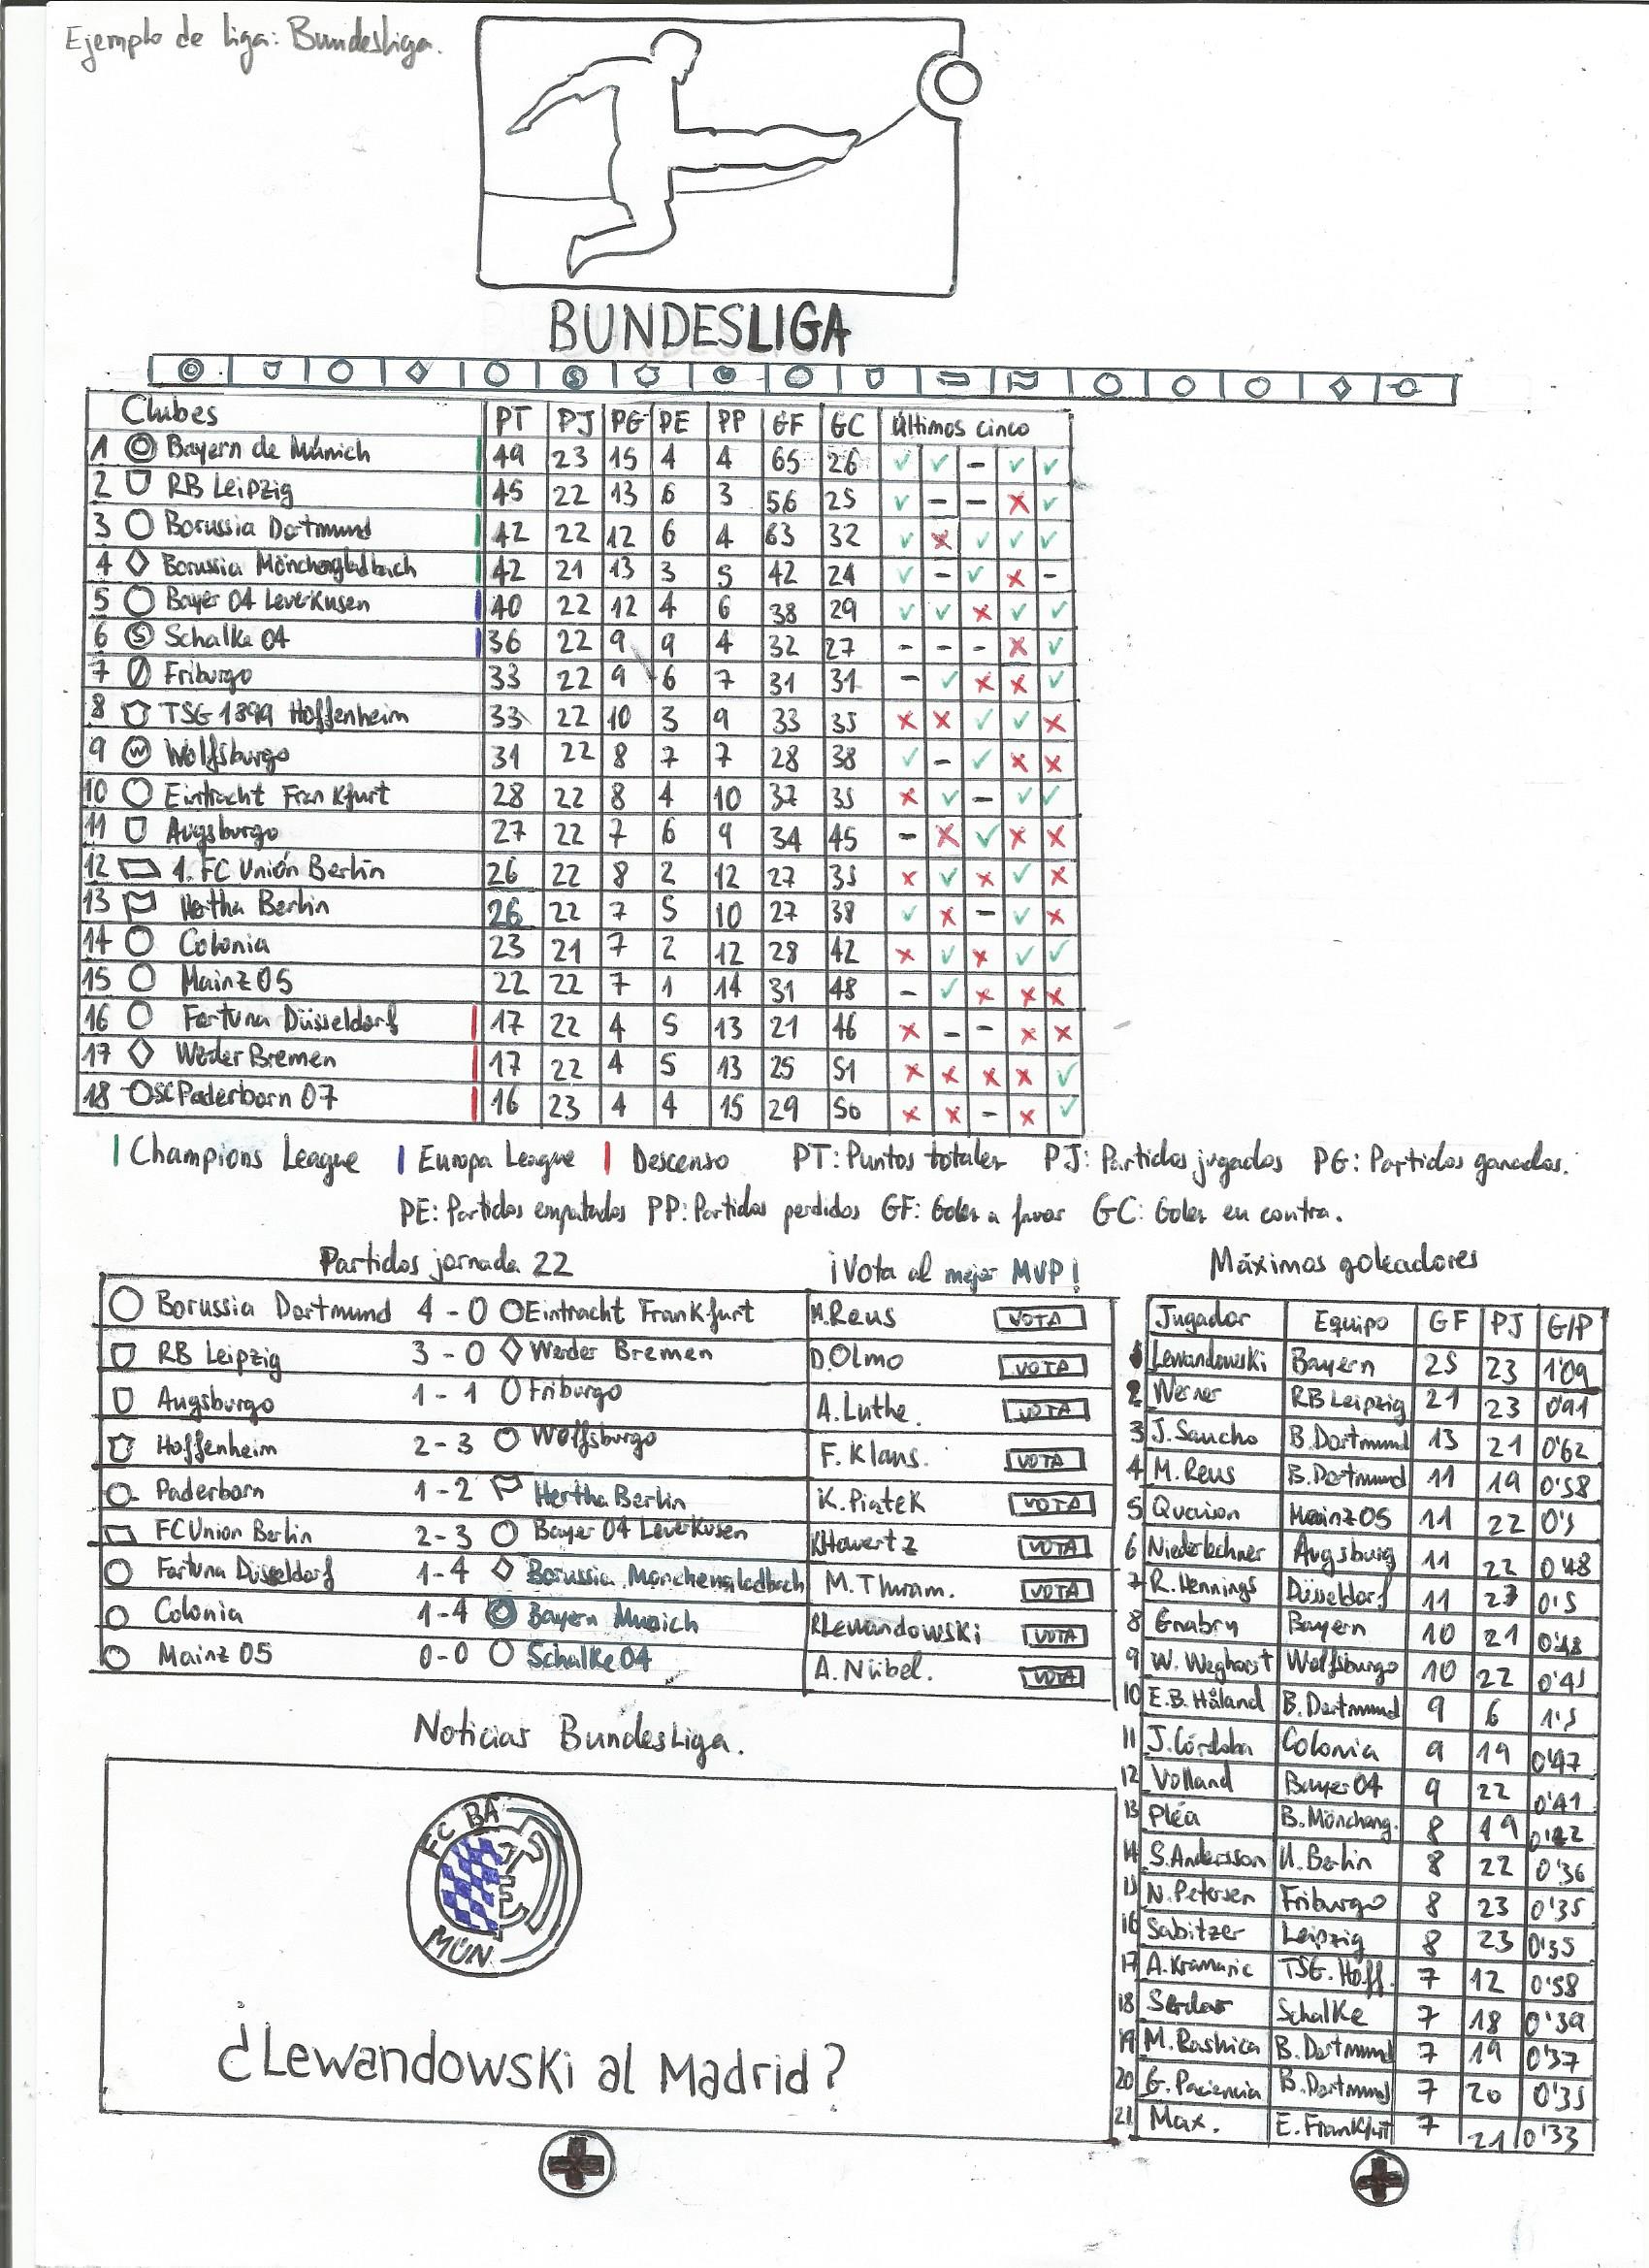 Ejemplo de liga: Bundesliga.
BUNDESLIGA
Clubes PT PJ PG PE PP GF GC Últimos cinco
1 Bayern de Múnich 49 23 15 4 4 65 26 ✓ ✓ - ✓ ✓
2 RB Leipzig 45 22 13 6 3 56 25 ✓ - - x ✓
3 Borussia Dortmund 42 22 12 6 4 63 32 ✓ x ✓ ✓ ✓
4 Borussia Mönchengladbach 42 21 13 3 5 42 24 ✓ - ✓ x -
5 Bayer 04 Leverkusen 40 22 12 4 6 38 29 ✓ ✓ x ✓ ✓
6 S Schalke 04 36 22 9 9 4 32 27 - - - x ✓
7 Friburgo 33 22 9 6 7 31 31 - ✓ x x ✓
8 TSG 1899 Hoffenheim 33 22 10 3 9 33 35 x x ✓ ✓ x
9 W Wolfsburgo 31 22 8 7 7 28 38 ✓ - ✓ x x
10 Eintracht Frankfurt 28 22 8 4 10 37 35 x ✓ - ✓ ✓
11 Augsburgo 27 22 7 6 9 34 45 - x ✓ x x
12 1. FC Unión Berlin 26 22 8 2 12 27 35 x ✓ x ✓ x
13 Hertha Berlin 26 22 7 5 10 27 38 ✓ x - ✓ x
14 Colonia 23 21 7 2 12 28 42 x ✓ x ✓ ✓
15 Mainz 05 22 22 7 1 14 31 48 - ✓ x x x
16 Fortuna Düsseldorf 17 22 4 5 13 21 46 x - - x x
17 Werder Bremen 17 22 4 5 13 25 51 x x x x ✓
18 SC Paderborn 07 16 23 4 4 15 29 50 x x - x ✓
Champions League Europa League Descenso PT: Puntos totales PJ: Partidos jugados PG: Partidos ganados.
PE: Partidos empatados PP: Partidos perdidos GF: Goles a favor GC: Goles en contra.
Partidos jornada 22 ¡Vota al mejor MVP!
Borussia Dortmund 4 - 0 Eintracht Frankfurt M.Reus VOTA
RB Leipzig 3 - 0 Werder Bremen D.Olmo VOTA
Augsburgo 1 - 1 Friburgo A.Luthe. VOTA
Hoffenheim 2 - 3 Wolfsburgo F. Klaus. VOTA
Paderborn 1 - 2 Hertha Berlin K.Piatek VOTA
FC Union Berlin 2 - 3 Bayer 04 Leverkusen K.Havertz VOTA
Fortuna Düsseldorf 1-4 Borussia Monchengladbach M. Thuram. VOTA
Colonia 1-4 Bayern Munich R.Lewandowski VOTA
Mainz 05 0-0 Schalke 04 A. Nübel. VOTA
Máximos goleadores
Jugador Equipo GF PJ G/P
1 Lewandowski Bayern 25 23 1'09
2 Werner RB Leipzig 21 23 0'91
3 J. Sancho B. Dortmund 13 21 0'62
4 M. Reus B. Dortmund 11 19 0'58
5 Quaison Mainz 05 11 22 0'5
6 Niederlechner Augsburg 11 22 0'48
7 R. Hennings Düsseldorf 11 22 0'5
8 Gnabry Bayern 10 21 0'48
9 W. Weghorst Wolfsburgo 10 22 0'45
10 E.B. Håland B. Dortmund 9 6 1'5
11 J. Córdoba Colonia 9 19 0'47
12 Volland Bayer 04 9 22 0'41
13 Pléa B. Mönchang. 8 19 0'42
14 S. Andersson U. Berlin 8 22 0'36
15 N. Petersen Friburgo 8 23 0'35
16 Sabitzer Leipzig 8 23 0'35
17 A. Kramaric TSG. Hoff. 7 12 0'58
18 Serdar Schalke 7 18 0'39
19 M. Rashica B. Dortmund 7 19 0'37
20 G. Paciencia B. Dortmund 7 20 0'35
21 Max. E. Frankfurt 7 21 0'33
Noticias Bundesliga.
FC BA
MÜN
¿Lewandowski al Madrid?